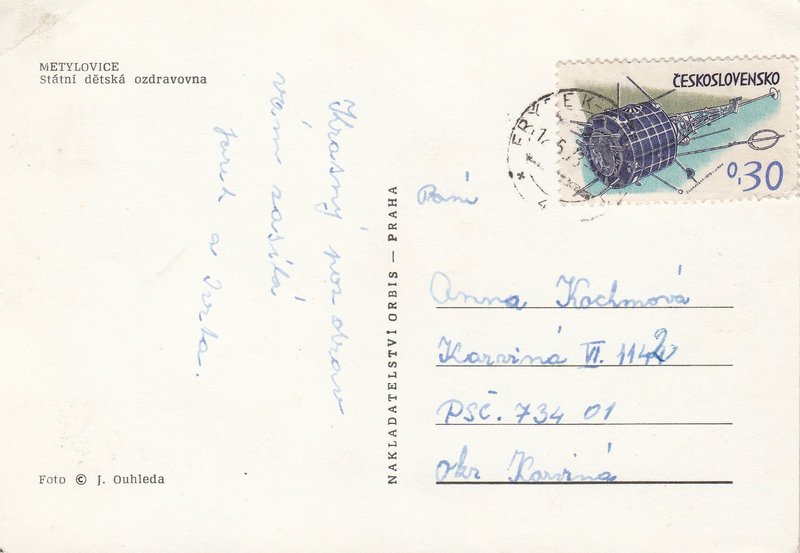 METYLOVICE
Státní dětská ozdravovna
Krasný pozdrav
vám zasílá
Jarek a Iveta.
Foto © J. Ouhleda
NAKLADATELSTVÍ ORBIS — PRAHA
ČESKOSLOVENSKO
0,30
FRÝDEK-
Paní
Anna Kochmová
Karviná VI. 1142
PSČ. 734 01
okr Karviná